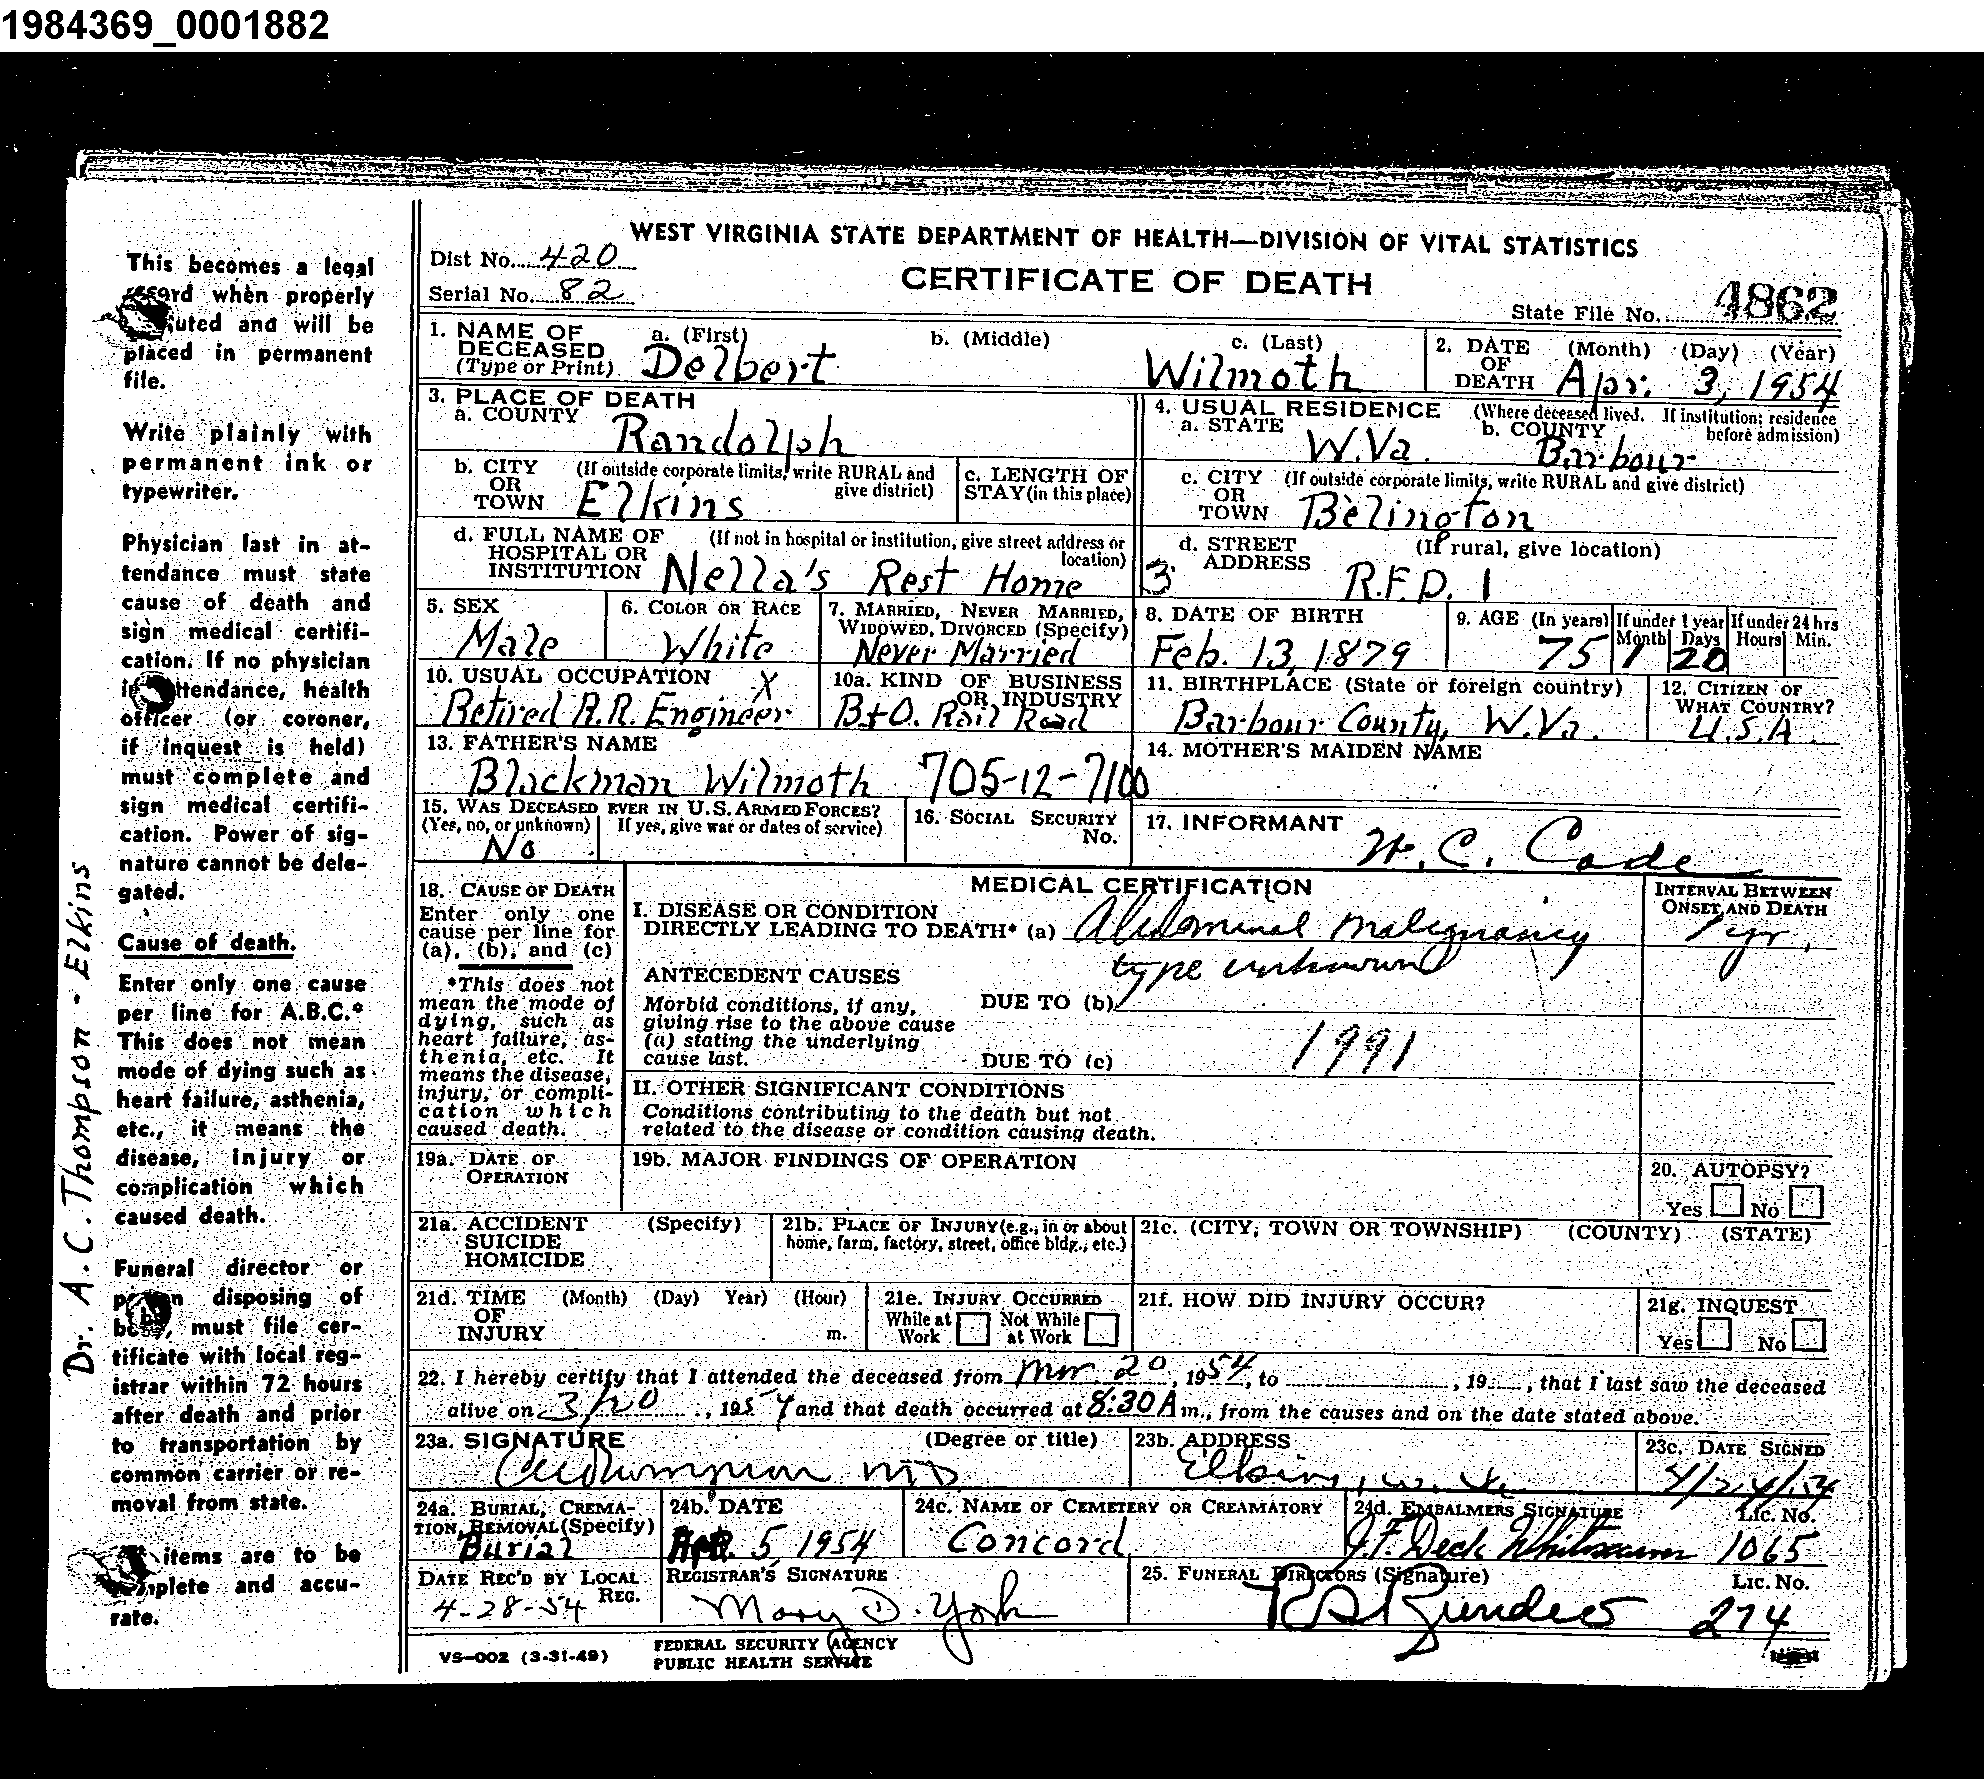 1984369_0001882
WEST VIRGINIA STATE DEPARTMENT OF HEALTH—DIVISION OF VITAL STATISTICS
Dist No. 420
CERTIFICATE OF DEATH
Serial No. 82
State File No. 4862
1. NAME OF DECEASED (Type or Print)
a. (First) b. (Middle) c. (Last)
Delbert Wilmoth
2. DATE OF DEATH (Month) (Day) (Year)
Apr. 3, 1954
3. PLACE OF DEATH
a. COUNTY Randolph
4. USUAL RESIDENCE (Where deceased lived. If institution; residence before admission)
a. STATE W.Va. b. COUNTY Barbour
b. CITY OR TOWN (If outside corporate limits, write RURAL and give district)
Elkins
c. LENGTH OF STAY (in this place)
c. CITY OR TOWN (If outside corporate limits, write RURAL and give district)
Belington
d. FULL NAME OF HOSPITAL OR INSTITUTION (If not in hospital or institution, give street address or location)
Nella's Rest Home
d. STREET ADDRESS (If rural, give location)
3 R.F.D. 1
5. SEX
Male
6. COLOR OR RACE
White
7. MARRIED, NEVER MARRIED, WIDOWED, DIVORCED (Specify)
Never Married
8. DATE OF BIRTH
Feb. 13, 1879
9. AGE (In years) If under 1 year If under 24 hrs
Month Days Hours Min.
75 1 20
10. USUAL OCCUPATION X
Retired R.R. Engineer
10a. KIND OF BUSINESS OR INDUSTRY
B+O. Rail Road
11. BIRTHPLACE (State or foreign country)
Barbour County, W.Va.
12. CITIZEN OF WHAT COUNTRY?
U.S.A
13. FATHER'S NAME
Blackman Wilmoth 705-12-7100
14. MOTHER'S MAIDEN NAME
15. WAS DECEASED EVER IN U.S. ARMED FORCES?
(Yes, no, or unknown) If yes, give war or dates of service)
No
16. SOCIAL SECURITY No.
17. INFORMANT
W. C. Cade
18. CAUSE OF DEATH
Enter only one cause per line for (a), (b), and (c)
*This does not mean the mode of dying, such as heart failure, asthenia, etc. It means the disease, injury, or complication which caused death.
MEDICAL CERTIFICATION
INTERVAL BETWEEN ONSET AND DEATH
I. DISEASE OR CONDITION DIRECTLY LEADING TO DEATH* (a) Abdominal malignancy
1 yr.
type unknown
ANTECEDENT CAUSES
Morbid conditions, if any, giving rise to the above cause (a) stating the underlying cause last.
DUE TO (b)
1991
DUE TO (c)
II. OTHER SIGNIFICANT CONDITIONS
Conditions contributing to the death but not related to the disease or condition causing death.
19a. DATE OF OPERATION
19b. MAJOR FINDINGS OF OPERATION
20. AUTOPSY?
Yes No
21a. ACCIDENT SUICIDE HOMICIDE (Specify)
21b. PLACE OF INJURY (e.g., in or about home, farm, factory, street, office bldg., etc.)
21c. (CITY, TOWN OR TOWNSHIP) (COUNTY) (STATE)
21d. TIME OF INJURY (Month) (Day) Year) (Hour) m.
21e. INJURY OCCURRED
While at Work Not While at Work
21f. HOW DID INJURY OCCUR?
21g. INQUEST
Yes No
22. I hereby certify that I attended the deceased from Mar. 20, 1954, to , 19 , that I last saw the deceased
alive on 3/20, 1954 and that death occurred at 8:30 A m., from the causes and on the date stated above.
23a. SIGNATURE (Degree or title)
ACThompson MD
23b. ADDRESS
Elkins, W. Va
23c. DATE SIGNED
4/24/54
24a. BURIAL, CREMATION, REMOVAL (Specify)
Burial
24b. DATE
Apr. 5, 1954
24c. NAME OF CEMETERY OR CREAMATORY
Concord
24d. EMBALMERS SIGNATURE Lic. No.
J.F. Deck Whitescarver 1065
DATE REC'D BY LOCAL REG.
4-28-54
REGISTRAR'S SIGNATURE
Mary D. York
25. FUNERAL DIRECTORS (Signature) Lic. No.
274
VS-002 (3-31-49)
FEDERAL SECURITY AGENCY
PUBLIC HEALTH SERVICE
This becomes a legal
when properly
and will be
placed in permanent
file.
Write plainly with
permanent ink or
typewriter.
Physician last in at-
tendance must state
cause of death and
sign medical certifi-
cation. If no physician
attendance, health
officer (or coroner,
if inquest is held)
must complete and
sign medical certifi-
cation. Power of sig-
nature cannot be dele-
gated.
Cause of death.
Enter only one cause
per line for A.B.C.*
This does not mean
mode of dying such as
heart failure, asthenia,
etc., it means the
disease, injury or
complication which
caused death.
Funeral director or
disposing of
must file cer-
tificate with local reg-
istrar within 72 hours
after death and prior
to transportation by
common carrier or re-
moval from state.
items are to be
and accu-
rate.
Dr. A.C. Thompson - Elkins